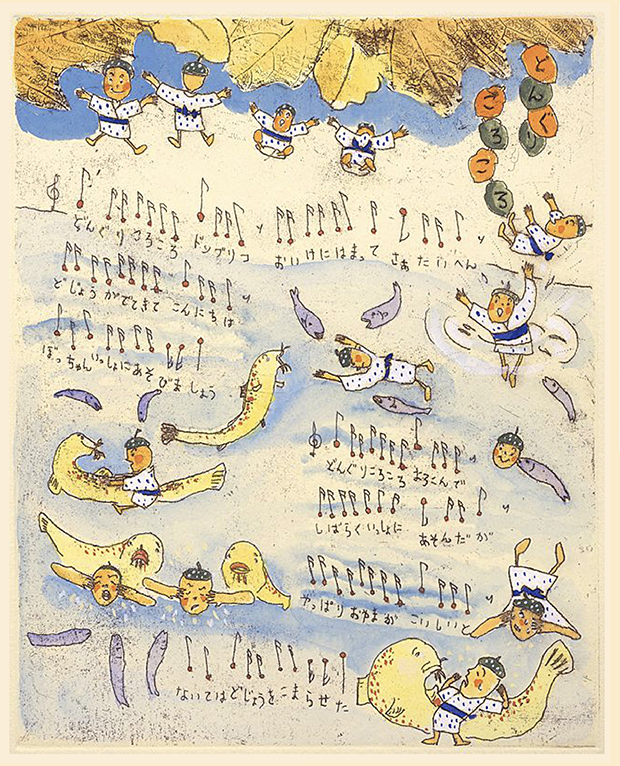 どんぐり
ころころ
どんぐりころころ ドンブリコ おいけにはまって さあたいへん
どじょうがでてきて こんにちは
ぼっちゃんいっしょにあそびましょう
どんぐりころころ よろこんで
しばらくいっしょに あそんだが
やっぱりおやまが こいしいと
ないてはどじょうをこまらせた